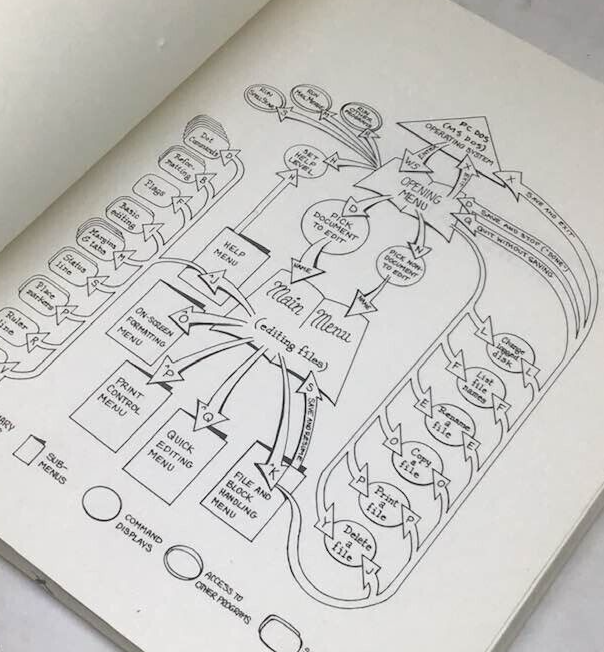 RUN
SPELLSTAR
RUN
MAILMERGE
RUN
OTHER
PROGRAMS
PC DOS
(MS DOS)
OPERATING SYSTEM
WS
X
SAVE AND EXIT
SET
HELP
LEVEL
H
OPENING
MENU
SAVE AND STOP ("DONE")
QUIT WITHOUT SAVING
D
Q
PICK
DOCUMENT
TO EDIT
NAME
N
PICK NON-
DOCUMENT
TO EDIT
NAME
Dot
Commands
Refor-
matting
B
Flags
F
Basic
editing
Margins
& tabs
M
Status
line
S
Place
markers
P
Ruler
line
R
H
HELP
MENU
^J
Main Menu
(editing files)
ON-SCREEN
FORMATTING
MENU
^P
PRINT
CONTROL
MENU
^Q
QUICK
EDITING
MENU
S
SAVE AND RESUME
K
FILE AND
BLOCK
HANDLING
MENU
L
Change
logged
disk
L
F
List
file
names
F
E
Rename
a
file
E
O
Copy
a
file
O
P
Print
a
file
P
Y
Delete
a
file
J
SUB-
MENUS
COMMAND
DISPLAYS
ACCESS TO
OTHER PROGRAMS